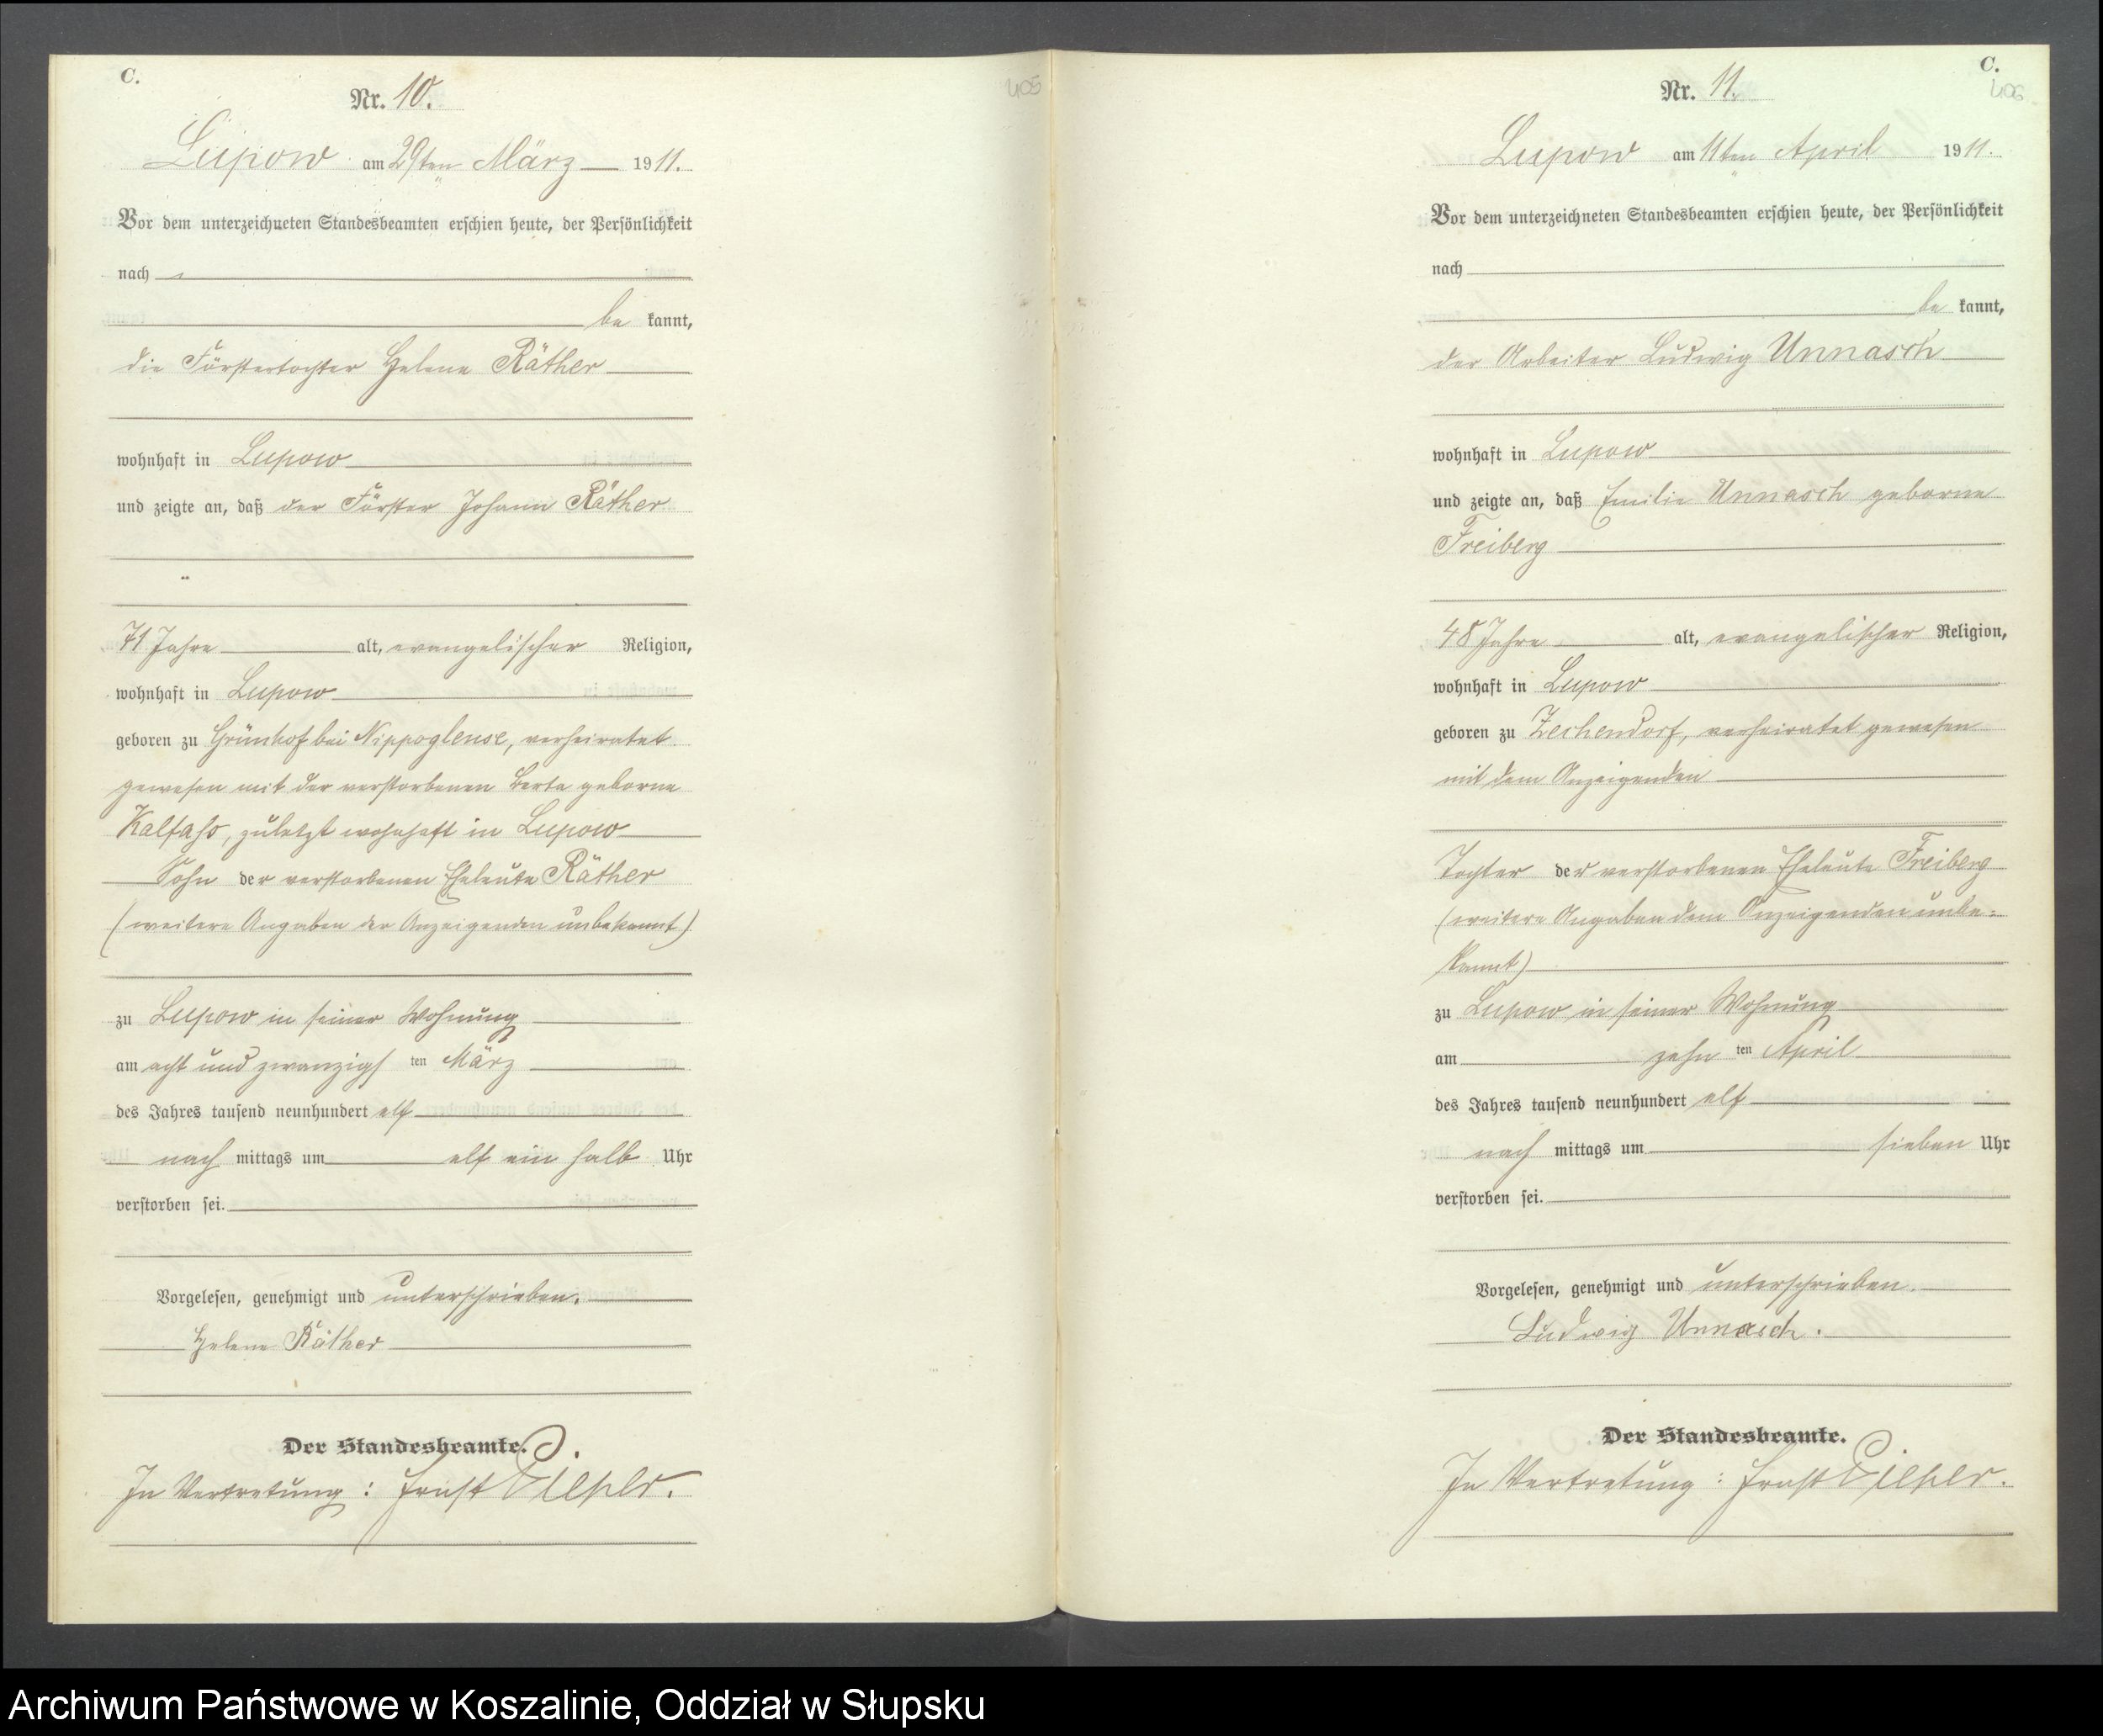 C.
405
Nr. 10.
Lupow am 29ten März 1911.
Vor dem unterzeichneten Standesbeamten erschien heute, der Persönlichkeit
nach
be kannt,
die Förstertochter Helene Räther
wohnhaft in Lupow
und zeigte an, daß der Förster Johann Räther
71 Jahre alt, evangelischer Religion,
wohnhaft in Lupow
geboren zu Grünhof bei Nippoglense, verheiratet
gewesen mit der verstorbenen Berta geborne
zuletzt wohnhaft in Lupow
Sohn der verstorbenen Eheleute Räther
(weitere Angaben der Anzeigenden unbekannt)
zu Lupow in seiner Wohnung
am acht und zwanzigsten März
des Jahres tausend neunhundert elf
nach mittags um elf ein halb Uhr
verstorben sei.
Vorgelesen, genehmigt und unterschrieben.
Helene Räther
Der Standesbeamte.
In Vertretung: Ernst Pieper.
C.
406
Nr. 11.
Lupow am 11ten April 1911.
Vor dem unterzeichneten Standesbeamten erschien heute, der Persönlichkeit
nach
be kannt,
der Arbeiter Ludwig Unnasch
wohnhaft in Lupow
und zeigte an, daß Emilie Unnasch geborne
Freiberg
48 Jahre alt, evangelischer Religion,
wohnhaft in Lupow
geboren zu Zechendorf, verheiratet gewesen
mit dem Anzeigenden
Tochter der verstorbenen Eheleute Freiberg
(weitere Angaben dem Anzeigenden unbe=
kannt)
zu Lupow in seiner Wohnung
am zehn ten April
des Jahres tausend neunhundert elf
nach mittags um sieben Uhr
verstorben sei.
Vorgelesen, genehmigt und unterschrieben.
Ludwig Unnasch.
Der Standesbeamte.
In Vertretung: Ernst Pieper.
Archiwum Państwowe w Koszalinie, Oddział w Słupsku